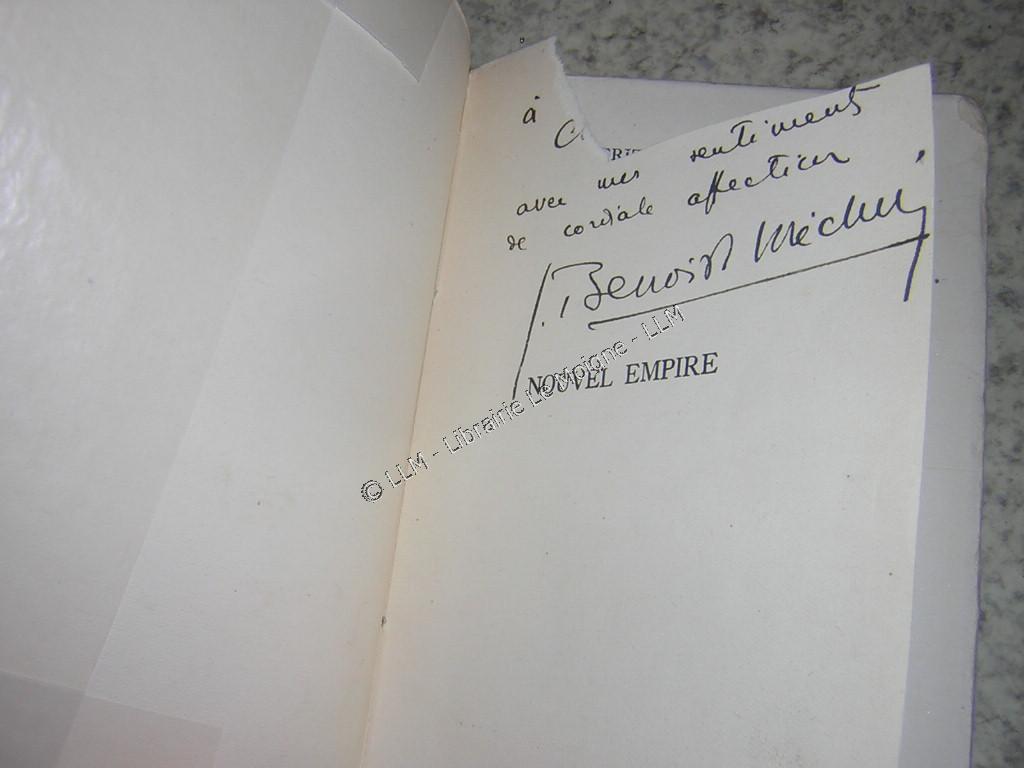 à
avec mes sentiments
de cordiale affection
J. Benoist Méchin
NOUVEL EMPIRE
© LLM - Librairie Le Moigne - LLM